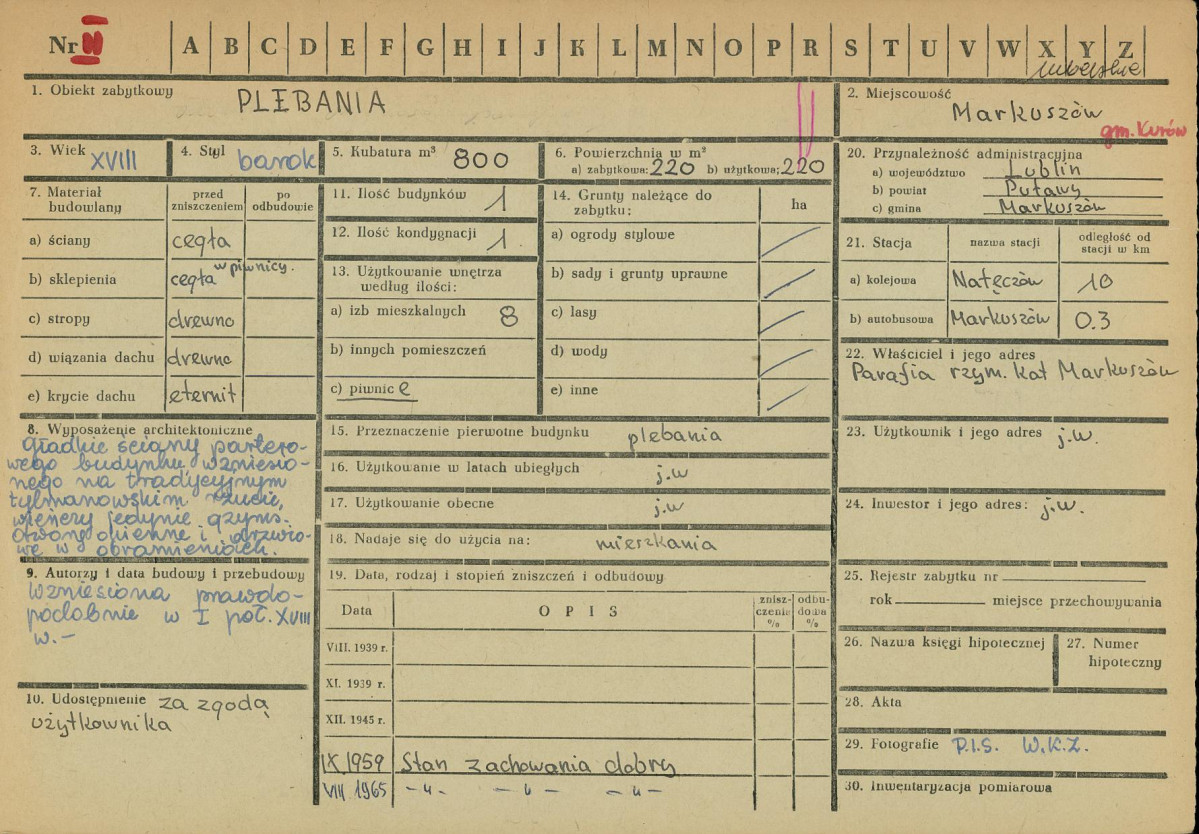 Nr II A B C D E F G H I J K L M N O P R S T U V W X Y Z
lubelskie
1. Obiekt zabytkowy PLEBANIA
2. Miejscowość Markuszów
gm. Kurów
3. Wiek XVIII
4. Styl barok
5. Kubatura m³ 800
6. Powierzchnia w m²
a) zabytkowa: 220 b) użytkowa; 220
20. Przynależność administracyjna
a) województwo Lublin
b) powiat Puławy
c) gmina Markuszów
7. Materiał budowlany
przed zniszczeniem
po odbudowie
a) ściany cegła
b) sklepienia cegła w piwnicy.
c) stropy drewno
d) wiązania dachu drewno
e) krycie dachu eternit
11. Ilość budynków 1
12. Ilość kondygnacji 1
13. Użytkowanie wnętrza
według ilości:
a) izb mieszkalnych 8
b) innych pomieszczeń
c) piwnic e
14. Grunty należące do
zabytku:
ha
a) ogrody stylowe
b) sady i grunty uprawne
c) lasy
d) wody
e) inne
21. Stacja
nazwa stacji
odległość od
stacji w km
a) kolejowa Nałęczów 10
b) autobusowa Markuszów 0.3
22. Właściciel i jego adres
Parafia rzym. kat Markuszów
8. Wyposażenie architektoniczne
Gładkie ściany partero-
wego budynku wzniesio-
nego na tradycyjnym
tylmanowskim rzucie,
wieńczy jedynie gzyms.
Otwory okienne i drzwio-
we w obramieniach.
15. Przeznaczenie pierwotne budynku plebania
16. Użytkowanie w latach ubiegłych j.w
17. Użytkowanie obecne j.w
18. Nadaje się do użycia na: mieszkania
23. Użytkownik i jego adres j.w.
24. Inwestor i jego adres: j.w.
9. Autorzy i data budowy i przebudowy
Wzniesiona prawdo-
podobnie w I poł. XVIII
w.-
10. Udostępnienie za zgodą
użytkownika
19. Data, rodzaj i stopień zniszczeń i odbudowy
Data
OPIS
znisz-
czenie
%
odbu-
dowa
%
VIII. 1939 r.
XI. 1939 r.
XII. 1945 r.
IX.1959 Stan zachowania dobry
VIII 1965 -„- -„- -„-
25. Rejestr zabytku nr
rok miejsce przechowywania
26. Nazwa księgi hipotecznej
27. Numer
hipoteczny
28. Akta
29. Fotografie P.I.S. W.K.Z.
30. Inwentaryzacja pomiarowa